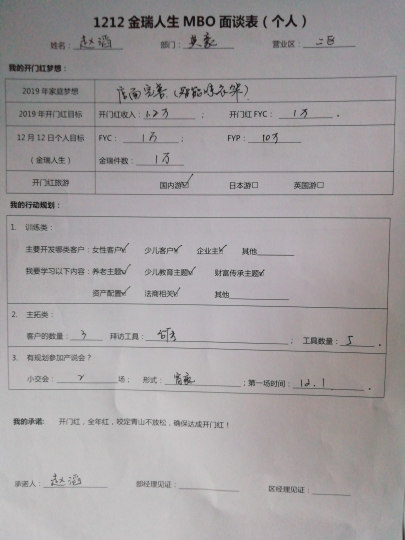 1212 金瑞人生 MBO 面谈表（个人）
姓名： 赵滔 部门： 英豪 营业区： 二区
我的开门红梦想：
2019 年家庭梦想 店面完善
2019 年开门红目标 开门红收入：1.2万 ； 开门红 FYC：1万 。
12 月 12 日个人目标 FYC：1万 ； FYP：10万
（金瑞人生） 金瑞件数：1万
开门红旅游 国内游☑ 日本游□ 英国游□
我的行动规划：
1. 训练类：
主要开发哪类客户：女性客户☑ 少儿客户☑ 企业主☑ 其他
我要学习以下内容：养老主题☑ 少儿教育主题☑ 财富传承主题☑
资产配置☑ 法商相关☑ 其他
2. 主拓类：
客户的数量：3 拜访工具： ； 工具数量：5 。
3. 有规划参加产说会？
小交会：2 场； 形式： ；第一场时间：12.1 。
我的承诺： 开门红，全年红，咬定青山不放松，确保达成开门红！
承诺人：赵滔 部经理见证： 区经理见证：